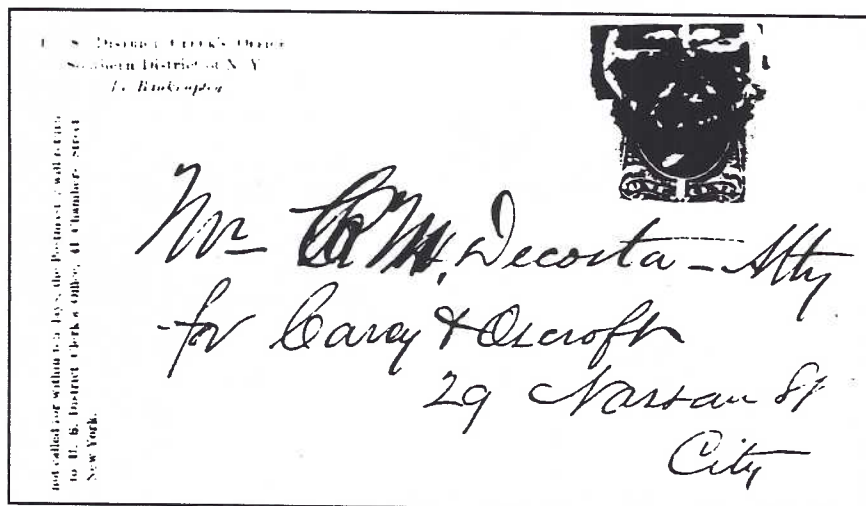 U. S. District Clerk's Office
Southern District of N. Y.
In Bankruptcy
not called for within ten days, the Postmaster will return
to U. S. District Clerk's Office, 41 Chambers Street
New York.
Mr Decosta - Atty
for Carey & Oscroft
29 Nassau St
City